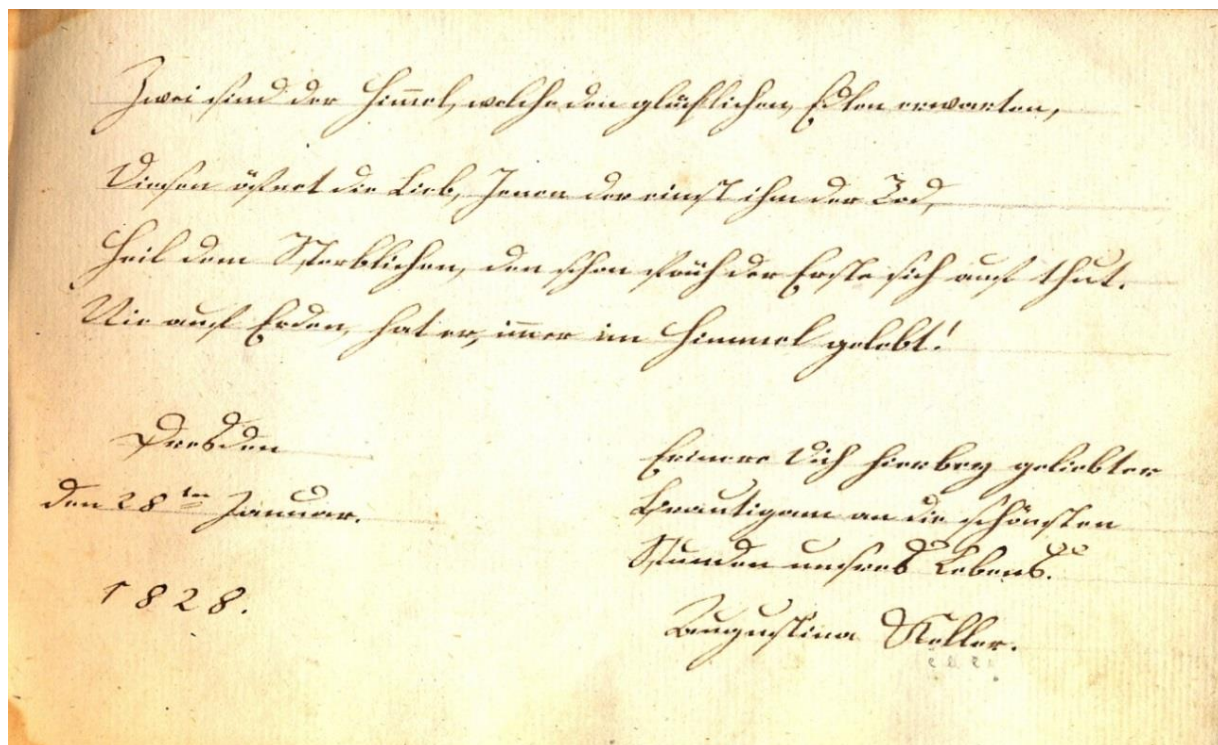 Zwei sind der Himmel, welche den glücklichen Edlen erwarten,
Diesen öfnet die Lieb, Jenen der einst ihm der Tod,
Heil dem Sterblichen, den schon früh der Erste sich auf thut.
Nie auf Erden, hat er, im̅er im Himmel gelebt!
Dresden
den 28ten Januar.
1828.
Erinnre Dich hierbey geliebter
Bräutigam an die schönsten
Stunden unsres Lebens.
Augustina Keller.